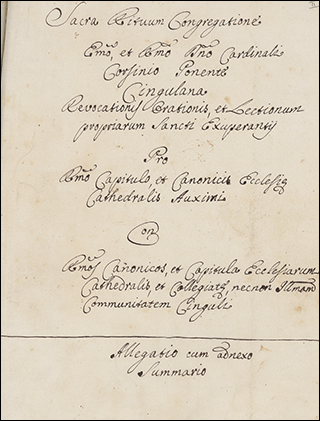 Sacra Rituum Congregatione
Emo, et Rmo Dno Cardinali
Corsinio Ponente
Cingulana
Revocationis Orationis, et Lectionum
propriarum Sancti Exuperantij
Pro
Rmo Capitulo, et Canonicis Ecclesię
Cathedralis Auximi
Con
Rmos Canonicos, et Capitula Ecclesiarum
Cathedralis, et Collegiatę, necnon Illmam
Communitatem Cinguli
Allegatio cum adnexo
Summario